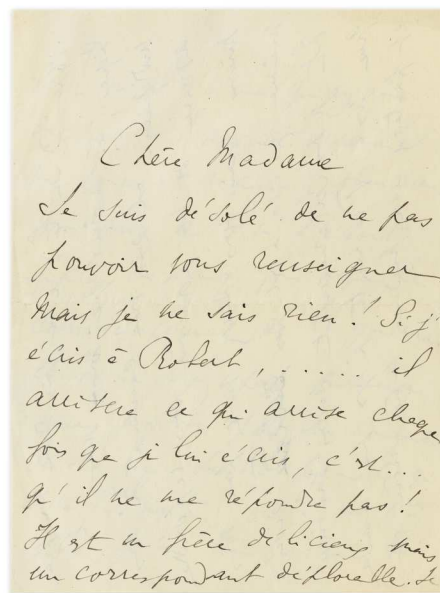 Chère Madame
Je suis désolé de ne pas
pouvoir vous renseigner
Mais je ne sais rien ! Si j'
écris à Robert, ...... il
arrivera ce qui arrive chaque
fois que je lui écris, c'est...
qu'il ne me répondra pas !
Il est un frère délicieux mais
un correspondant déplorable. Je